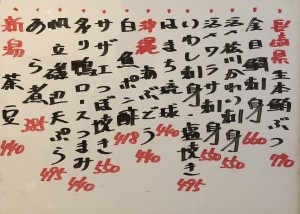 長崎県生本鮪ぶつ 770
金目鯛刺身 660
活〆松川かれい刺身 550
活〆ワラサ刺身 550
いわし刺身・塩焼き 495
はまち琉球 440
沖縄 ぶどう 440
白魚ポン酢 418
サザエつぼ焼き 550
鴨ロースつまみ 440
帆立磯辺天ぷら 495
あら煮 385
新潟 茶豆 440